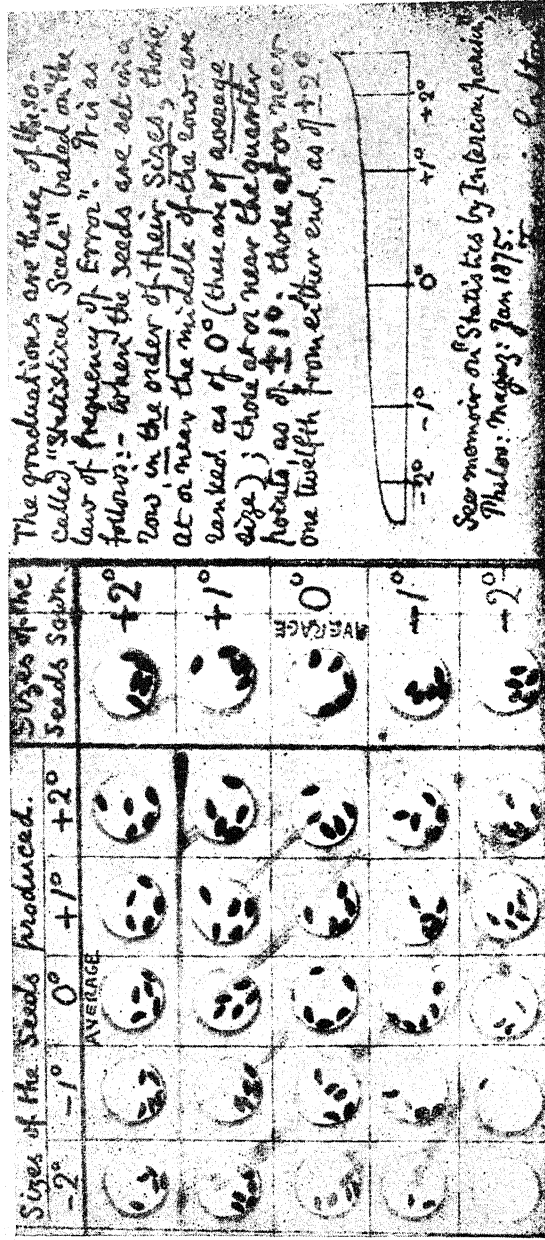 Sizes of the Seeds produced.
-2° -1° 0° +1° +2°
AVERAGE
Sizes of the
Seeds Sown.
+2°
+1°
0°
AVERAGE
-1°
-2°
The graduations are those of the so-
called "Statistical Scale" based on the
law of Frequency of Error". It is as
follows:- When the seeds are set in a
row, in the order of their Sizes, those
at or near the middle of the row are
ranked as of 0° (these are of average
size); those at or near the quarter
points, as of ±1°. those at or near
one twelfth from either end, as of ±2°.
-2° -1° 0° +1° +2°
See memoir on "Statistics by Intercomparison,"
Philos: Magaz: Jan 1875.
Francis Galton